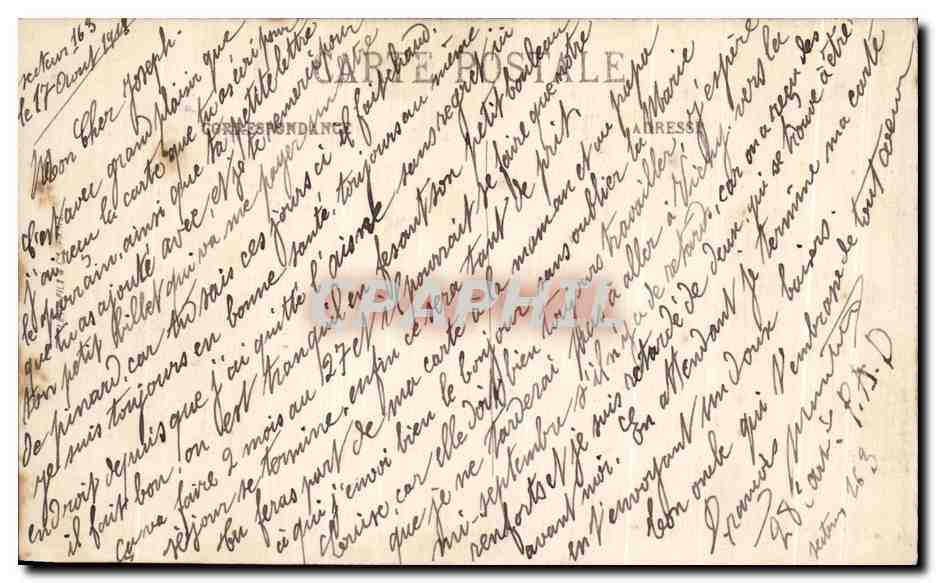 CARTE POSTALE
CORRESPONDANCE
ADRESSE
CPAPHIL
secteur 163
le 17 Aout 1918
Mon Cher Joseph.
C'est avec grand plaisir que
j'ai reçu la carte que tu as écrit pour
le parrain, ainsi que ta petite lettre
que tu as ajouté avec, et je te remercie pour
ton petit billet qui va me payer un
de pinard, car tu sais ces jours ci il fait chaud.
je suis toujours en bonne santé. toujours au même
endroit depuis que j'ai quitté l'aisne sans regret ici
il fait bon, on est tranquil en fesant son petit bouleau
ça va faire 2 mois au 27 et il pourrait se faire que notre
séjour se termine, enfin ce sera tant de prit
tu feras part de ma carte à la maman et au papa
à qui j'envoi bien le bonjour sans oublier la Marie
Clerise, car elle doit bien toujours travailler, j'espère
que je ne tarderai pas à aller à vers la
mi-septembre s'il n'y a de retard, car on a reçu des
renforts et je suis retardé de deux qui se trouve à être
avant moi. En attendant je termine ma carte
en t'envoyant un doux baisers.
ton oncle qui t'embrasse de tout coeur
François
28e art. P.A.D
secteur 163